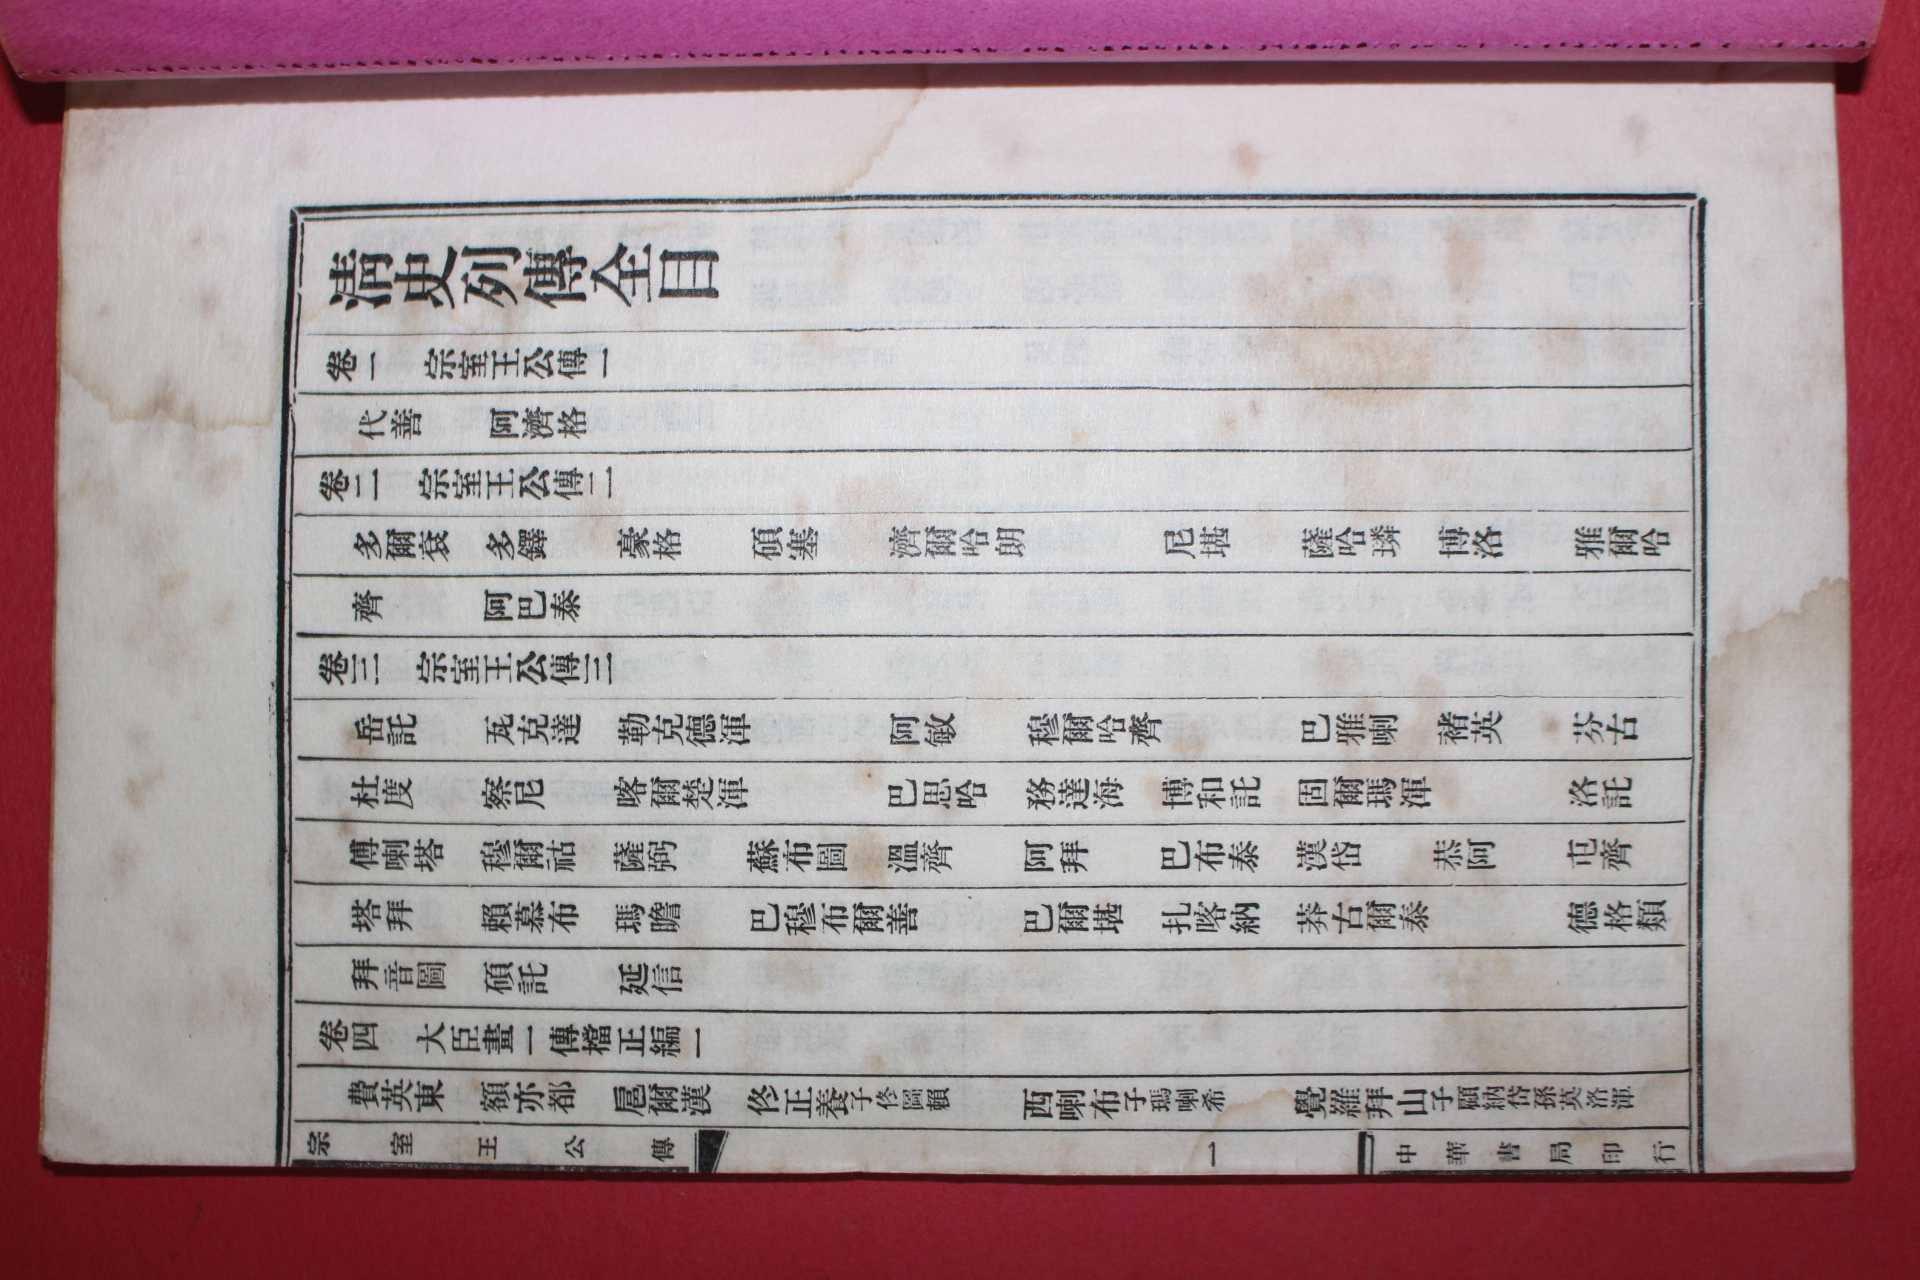 清史列傳全目
卷一 宗室王公傳一
代善 阿濟格
卷二 宗室王公傳二
多爾袞 多鐸 豪格 碩塞 濟爾哈朗 尼堪 薩哈璘 博洛 雅爾哈
齊 阿巴泰
卷三 宗室王公傳三
岳託 瓦克達 勒克德渾 阿敏 穆爾哈齊 巴雅喇 褚英 芬古
杜度 察尼 喀爾楚渾 巴思哈 務達海 博和託 固爾瑪渾 洛託
傅喇塔 穆爾祜 薩弼 蘇布圖 溫齊 阿拜 巴布泰 漢岱 恭阿 屯齊
塔拜 賴慕布 瑪瞻 巴穆布爾善 巴爾堪 扎喀納 莽古爾泰 德格類
拜音圖 碩託 延信
卷四 大臣畫一傳檔正編一
費英東 額亦都 扈爾漢 佟正養子佟圖賴 西喇布子瑪喇希 覺羅拜山子顧納岱孫莫洛渾
宗室王公傳 一 中華書局印行